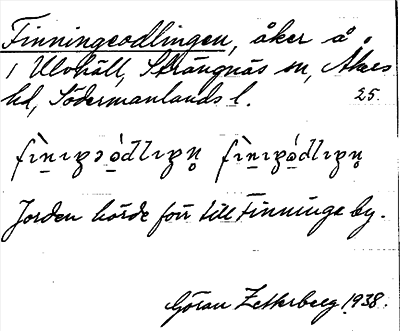 Finningeodlingen, åker å
1 Ulvhäll, Strängnäs sn, Åkers
hd, Södermanlands l. 25.
Jorden hörde förr till Finninge by.
Göran Zetterberg 1938.